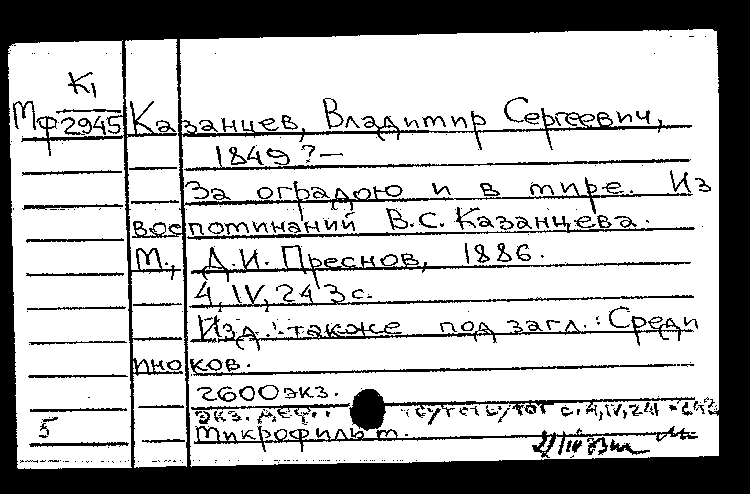 К1
Мф 2945 Казанцев, Владимир Сергеевич,
1849?—
За оградою и в мире. Из
воспоминаний В.С. Казанцева.
М., Д.И. Преснов, 1886.
4, IV, 243 с.
Изд. также под загл.: Среди
иноков.
2600 экз.
экз. деф.: отсутствуют с. 4, IV, 241-242
5 Микрофильм.